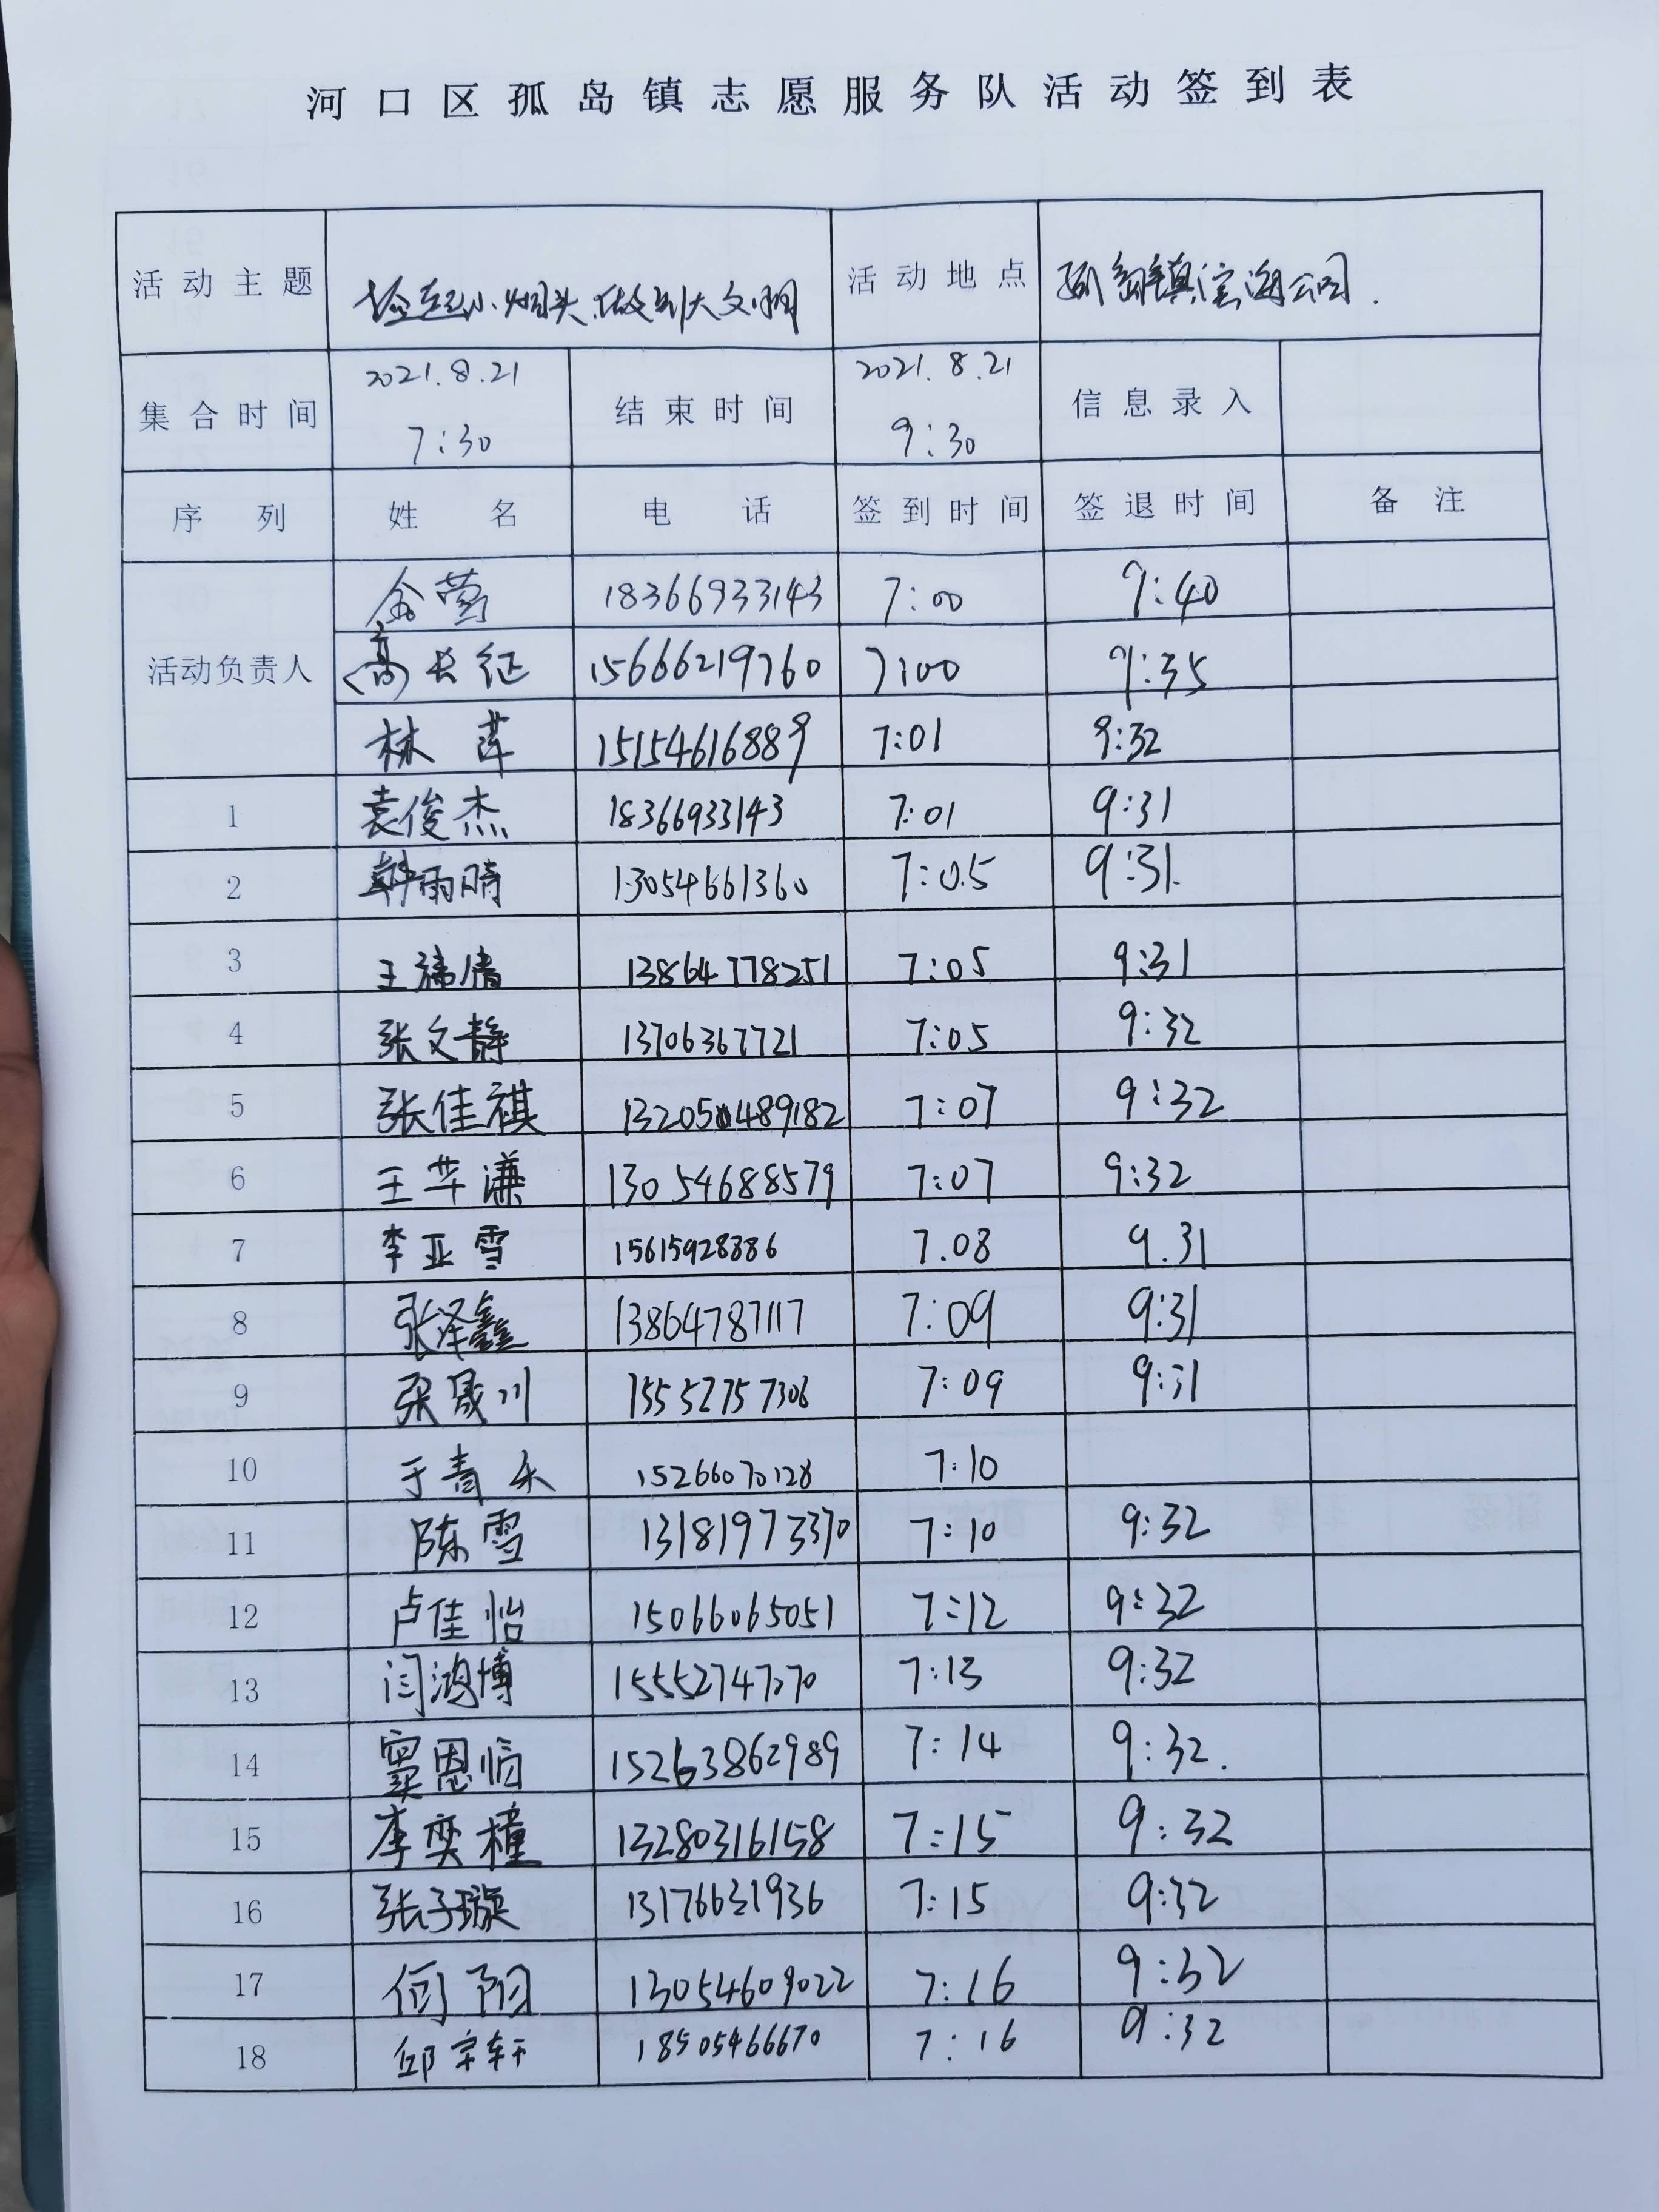 河口区孤岛镇志愿服务队活动签到表
活动主题 捡起小烟头.做到大文明 活动地点 孤岛镇滨海公园.
集合时间 2021.8.21 7:30 结束时间 2021.8.21 9:30 信息录入
序列 姓名 电话 签到时间 签退时间 备注
活动负责人
金莺 18366933143 7:00 9:40
高长征 15666219760 7:00 9:35
林萍 15154616889 7:01 9:32
1 袁俊杰 18366933143 7:01 9:31
2 韩雨晴 13054661360 7:05 9:31
3 王祎倩 13864778251 7:05 9:31
4 张文静 13706367721 7:05 9:32
5 张佳祺 9:32 7:07
6 王苹谦 13054688579 7:07 9:32
7 李亚雪 15615928886 7.08 9.31
8 张泽鑫 13864787117 7:09 9:31
9 张晟川 15552757306 7:09 9:31
10 于青禾 15266070128 7:10
11 陈雪 13181973370 7:10 9:32
12 卢佳怡 15066065051 7:12 9:32
13 闫鸿博 15552747270 7:13 9:32
14 窦恩 15263862989 7:14 9:32.
15 李奕橦 13280316158 7:15 9:32
16 张子璇 13176631936 7:15 9:32
17 何阳 13054609022 7:16 9:32
18 邱宇轩 18505466670 7:16 9:32